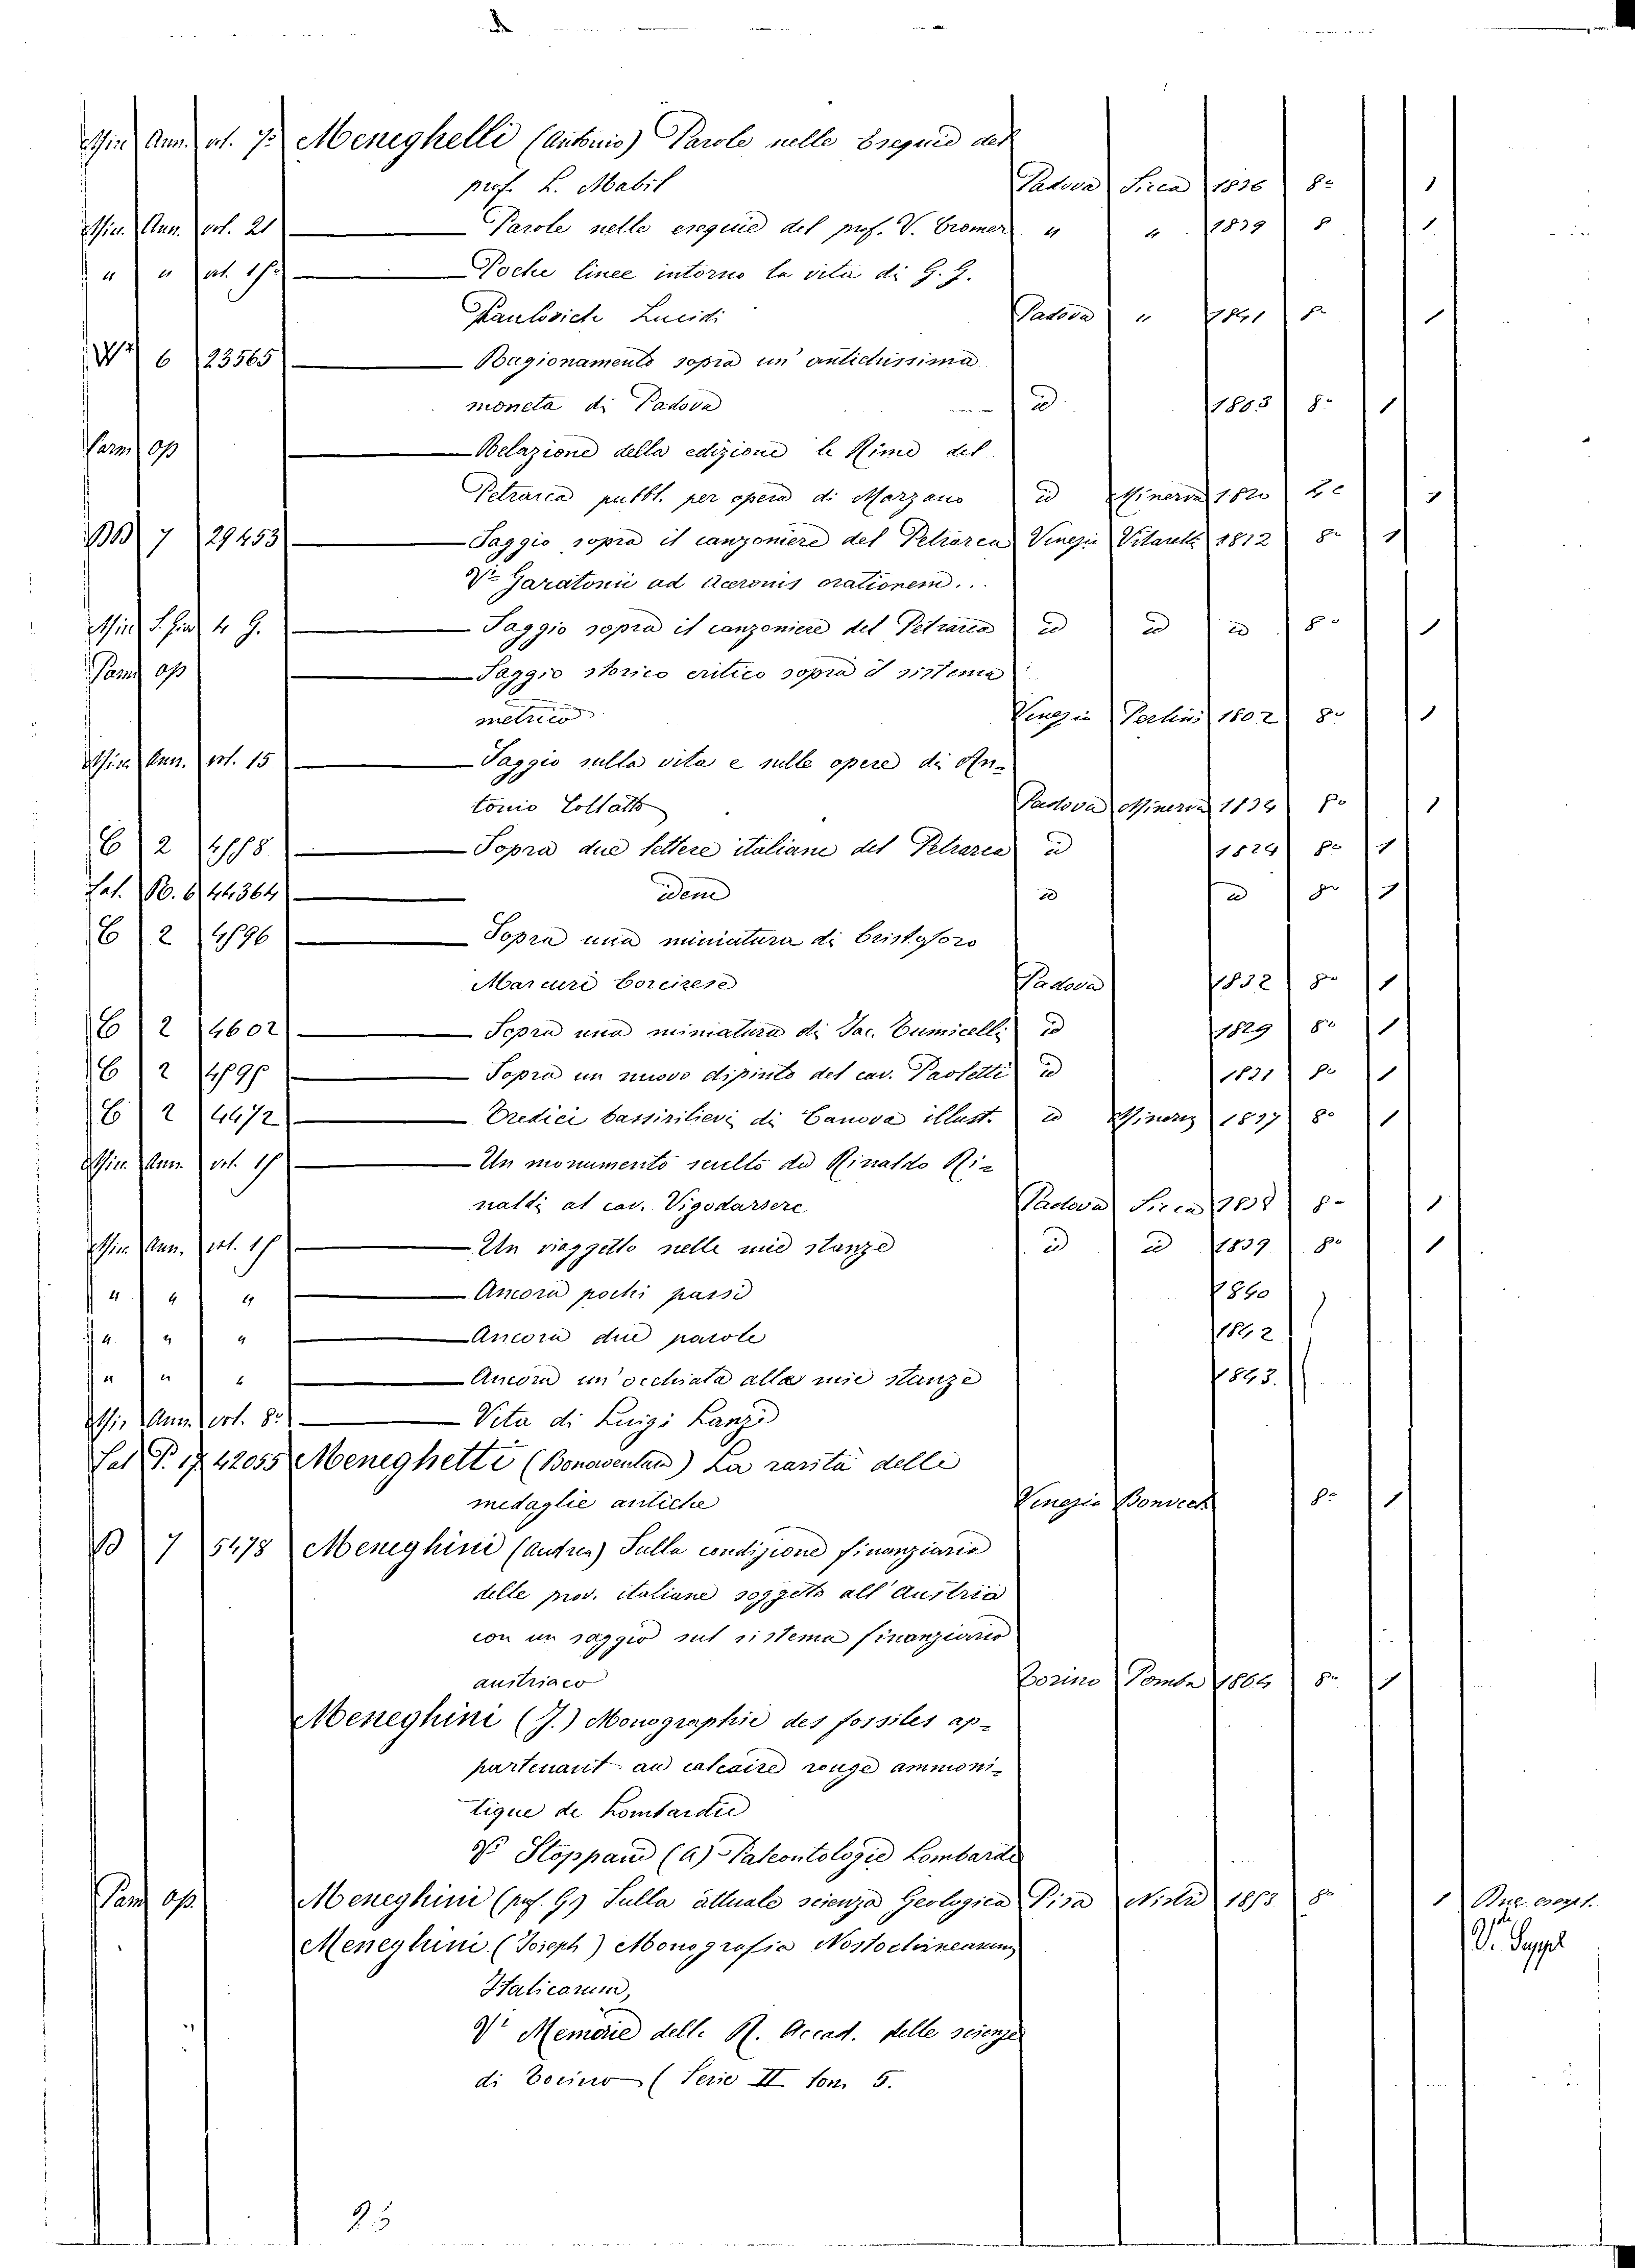 Min Ann. vol. 7. Meneghelli (Antonio) Parole nelle Esequie del
prof. L. Mabil Padova Sicca 1836 8° 1
Min. Ann. vol. 21 Parole nelle esequie del prof. V. Cromer " " 1839 8 1
" " vol. Poche linee intorno la vita di G. G.
Paulovich Lucidi Padova " 1841 8° 1
6 23565 Ragionamento sopra un' antichissima
moneta di Padova id 1803 8° 1
Farm op Relazione della edizione le Rime del
Petrarca pubbl. per opera di Marzano id Minerva 1820 1
BB 7 29453 Saggio sopra il canzoniere del Petrarca Venezia Vitarelli 1812 8° 1
V° Garatonii ad Aceronis orationem...
Min S. fin 4 G. Saggio sopra il canzoniere del Petrarca id id id 8° 1
Parm op Saggio storico critico sopra il sistema
metrico Venezia Perlini 1802 8° 1
Min Ann. vol. 15 Saggio sulla vita e sulle opere di An-
tonio Collalto Padova Minerva 1834 8° 1
E 2 Sopra due lettere italiane del Petrarca id 1824 8° 1
Sal. B. 6 44364 idem id id 8° 1
E 2 4596 Sopra una miniatura di Cristoforo
Marcuri Corcirese Padova 1832 8° 1
E 2 4602 Sopra una miniatura di Jac. Tumicelli id 1829 8° 1
E 2 Sopra un nuovo dipinto del cav. Paoletti id 1831 8° 1
E 2 4472 Tredici bassirilievi di Canova illust. id Minerva 1837 8° 1
Min Ann vol. Un monumento sculto da Rinaldo Ri-
naldi al cav. Vigodarsere Padova Sicca 8° 1
Min Ann. vol. Un viaggetto nelle mie stanze id id 1839 8° 1
" " " Ancora pochi passi 1840
" " " Ancora due parole 1842
" " " Ancora un'occhiata alle mie stanze 1843.
Min Ann vol. 8° Vita di Luigi Lanzi
Sal P. 17 42055 Meneghetti (Bonaventura) La rarità delle
medaglie antiche Venezia Bonvecch 8° 1
B 7 5478 Meneghini (Andrea) Sulla condizione finanziaria
delle prov. italiane soggette all'Austria
con un saggio sul sistema finanziario
austriaco Torino Pomba 1864 8° 1
Meneghini (J.) Monographie des fossiles ap-
partenant au calcaire rouge ammoni-
tique de Lombardie
V° Stoppani (A) Paleontologie Lombarde
Parm op. Meneghini (prof. G) Sulla attuale scienza Geologica Pisa Nistri 8° 1
Meneghini (Joseph) Monografia Nostochinearum V. Suppl
Italicarum,
V° Memorie delle R. Accad. delle scienze
di Torino (Serie II tom. 5.